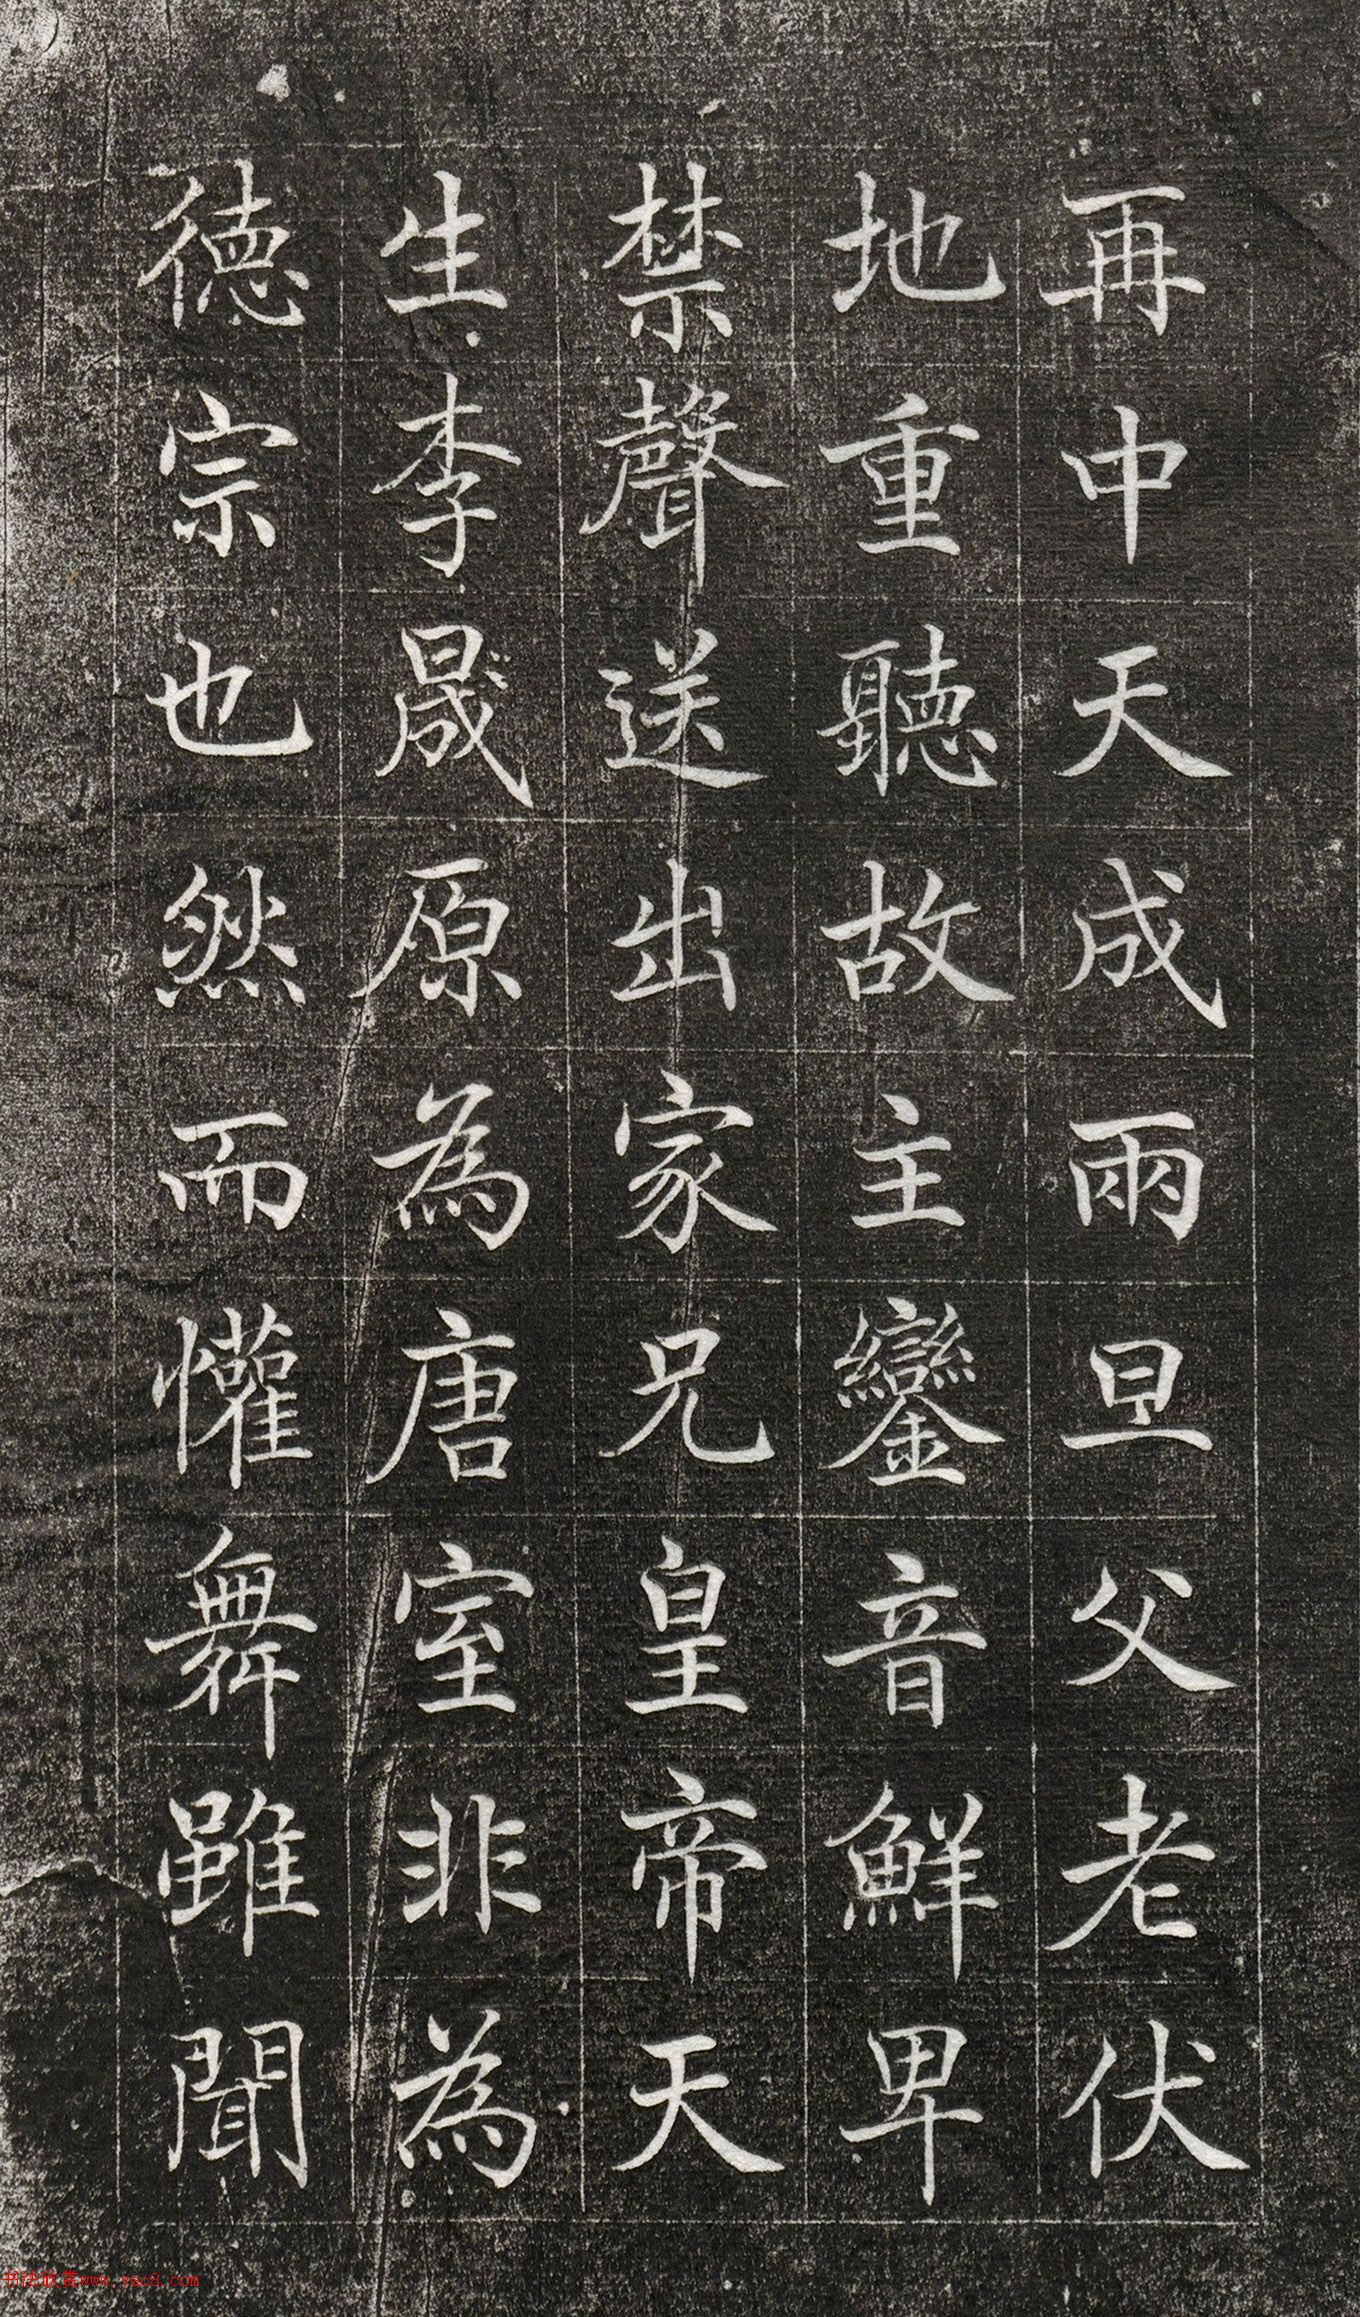 再中天成兩旦父老伏
地重聽故主鑾音鮮卑
禁聲送出家兄皇帝天
生李晟原為唐室非為
德宗也然而懽舞雖聞
书法欣赏www.yac8.com